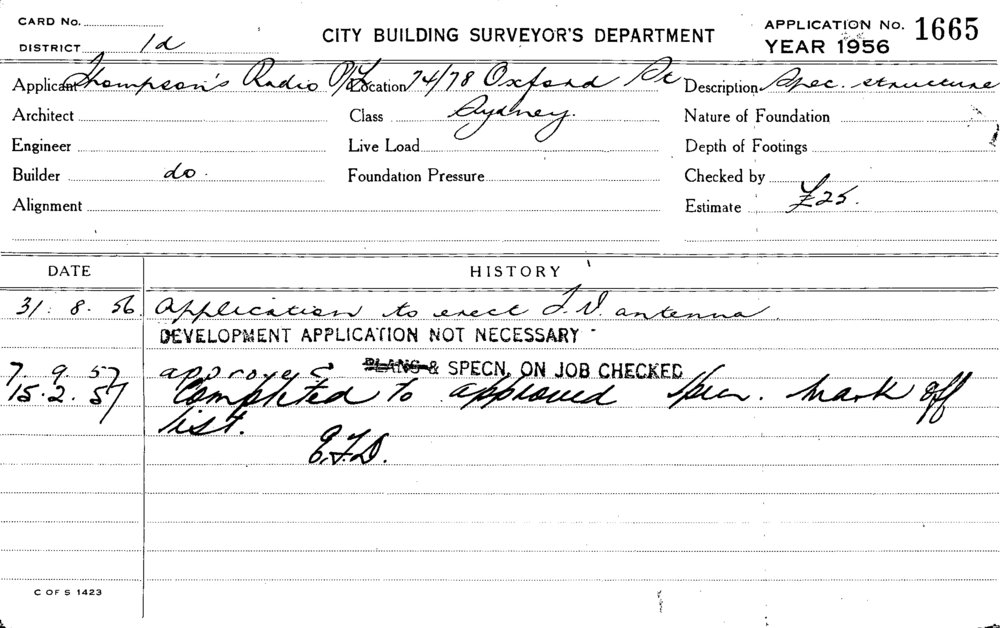 CARD No.
DISTRICT 1d
CITY BUILDING SURVEYOR'S DEPARTMENT
APPLICATION No. 1665
YEAR 1956
Applicant Thompson's Radio P/L Location 74/78 Oxford St Description Spec. structure
Architect Class Sydney. Nature of Foundation
Engineer Live Load Depth of Footings
Builder do. Foundation Pressure Checked by
Alignment Estimate £25.
DATE HISTORY
31. 8. 56. Application to erect T.V. antenna.
DEVELOPMENT APPLICATION NOT NECESSARY
7. 9. 57 approved PLANS & SPECN. ON JOB CHECKED
15.2.57 Completed to approved Specn. Mark off
list.
E.F.D.
C OF S 1423